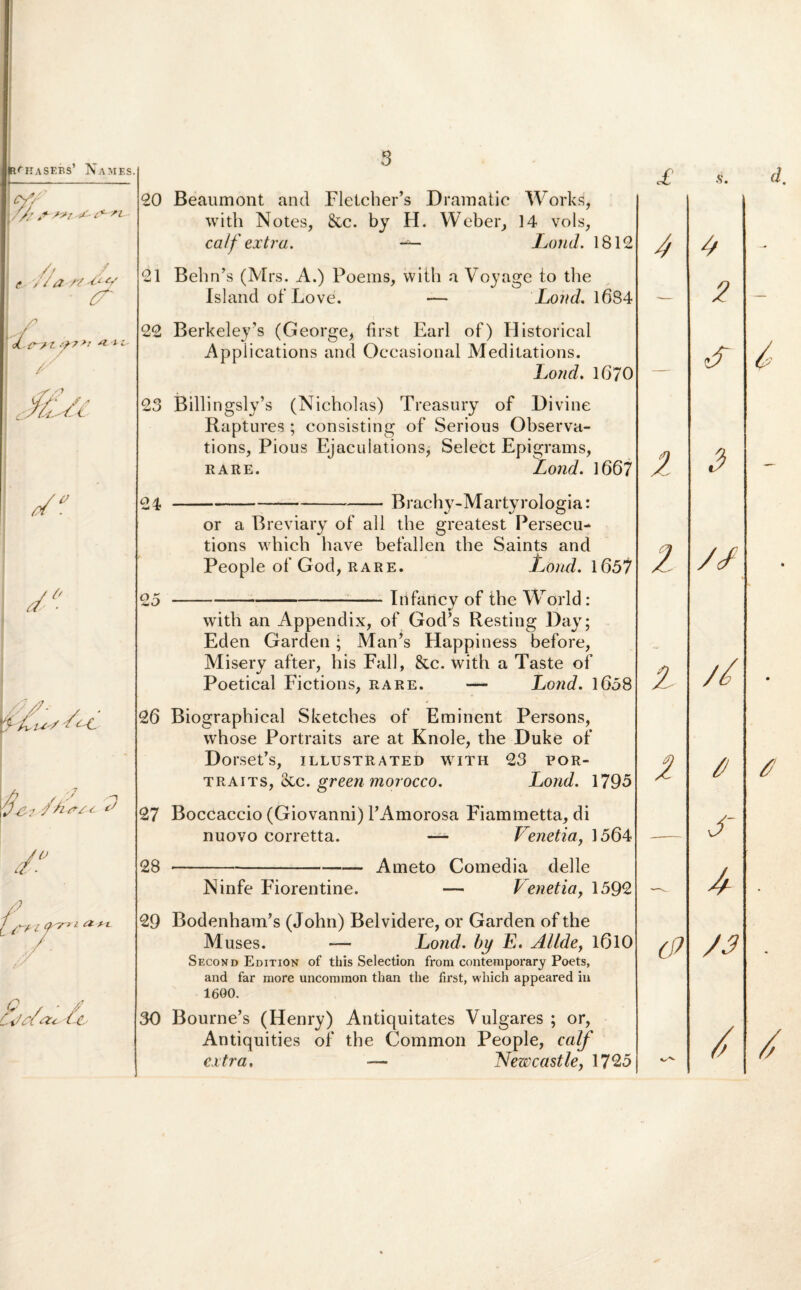 3
RCHASERS' NAMES.
£ s. d.
20 Beaumont and Fletcher's Dramatic Works,
with Notes, &c. by H. Weber, 14 vols,
calf extra. — Lond. 1812 4 4 -
21 Behn's (Mrs. A.) Poems, with a Voyage to the
Island of Love. — Lond. 1684 — 2 —
22 Berkeley's (George, first Earl of) Historical
Applications and Occasional Meditations.
Lond. 1670 — 5 6
23 Billingsly's (Nicholas) Treasury of Divine
Raptures; consisting of Serious Observa-
tions, Pious Ejaculations, Select Epigrams,
RARE. Lond. 1667 2 3 -
do. 24 ———— Brachy-Martyrologia:
or a Breviary of all the greatest Persecu-
tions which have befallen the Saints and
People of God, RARE. Lond. 1657 2
do. 25 ———— Infancy of the World:
with an Appendix, of God's Resting Day;
Eden Garden; Man's Happiness before,
Misery after, his Fall, &c. with a Taste of
Poetical Fictions, RARE. — Lond. 1658 2 16 .
26 Biographical Sketches of Eminent Persons,
whose Portraits are at Knole, the Duke of
Dorset's, ILLUSTRATED WITH 23 POR-
TRAITS, &c. green morocco. Lond. 1795 2 0 0
27 Boccaccio (Giovanni) l'Amorosa Fiammetta, di
nuovo corretta. — Venetia, 1564 — 5
do. 28 ———— Ameto Comedia delle
Ninfe Fiorentine. — Venetia, 1592 — 4 .
29 Bodenham's (John) Belvidere, or Garden of the
Muses. — Lond. by E. Allde, 1610 13 .
SECOND EDITION of this Selection from contemporary Poets,
and far more uncommon than the first, which appeared in
1600.
30 Bourne's (Henry) Antiquitates Vulgares; or,
Antiquities of the Common People, calf
extra. — Newcastle, 1725 — 6 6